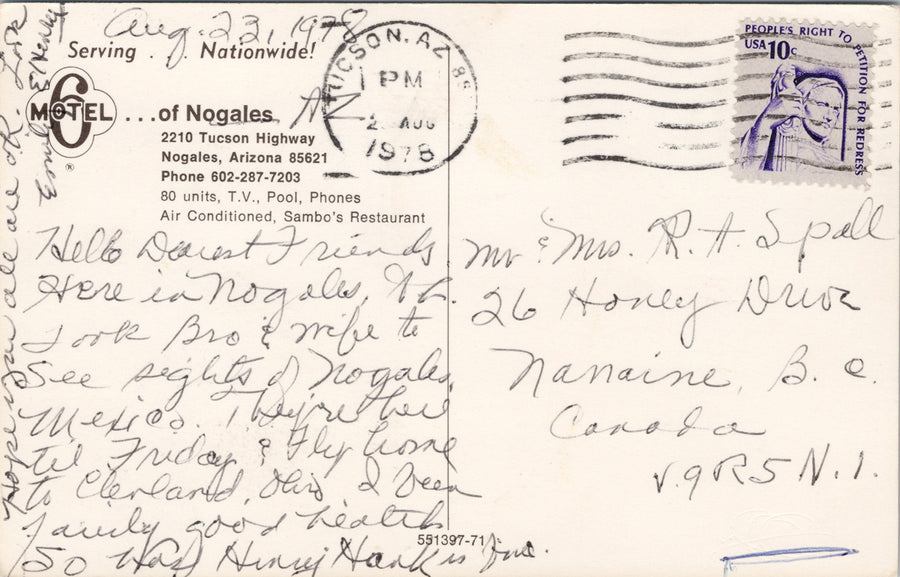 Aug. 23, 1978
Serving . . . Nationwide!
MOTEL 6 ®
. . . of Nogales
2210 Tucson Highway
Nogales, Arizona 85621
Phone 602-287-7203
80 units, T.V., Pool, Phones
Air Conditioned, Sambo's Restaurant
Hello Dearest Friends
Here in Nogales,
Took Bro & Wife to
See sights of Nogales,
Mexico. They're here
til Friday & Fly home
to Clevland, Ohio. I Been
fairly good health
So has Henry Hank is fine.
Hope you all are OK. Love
& Henry
TUCSON, AZ 85
PM
AUG
1978
PEOPLE'S RIGHT TO PETITION FOR REDRESS
USA 10c
Mr & Mrs. R. A. Spall
26 Honey Drive
Nanaine, B. C.
Canada
V9R5N.1.
551397-71